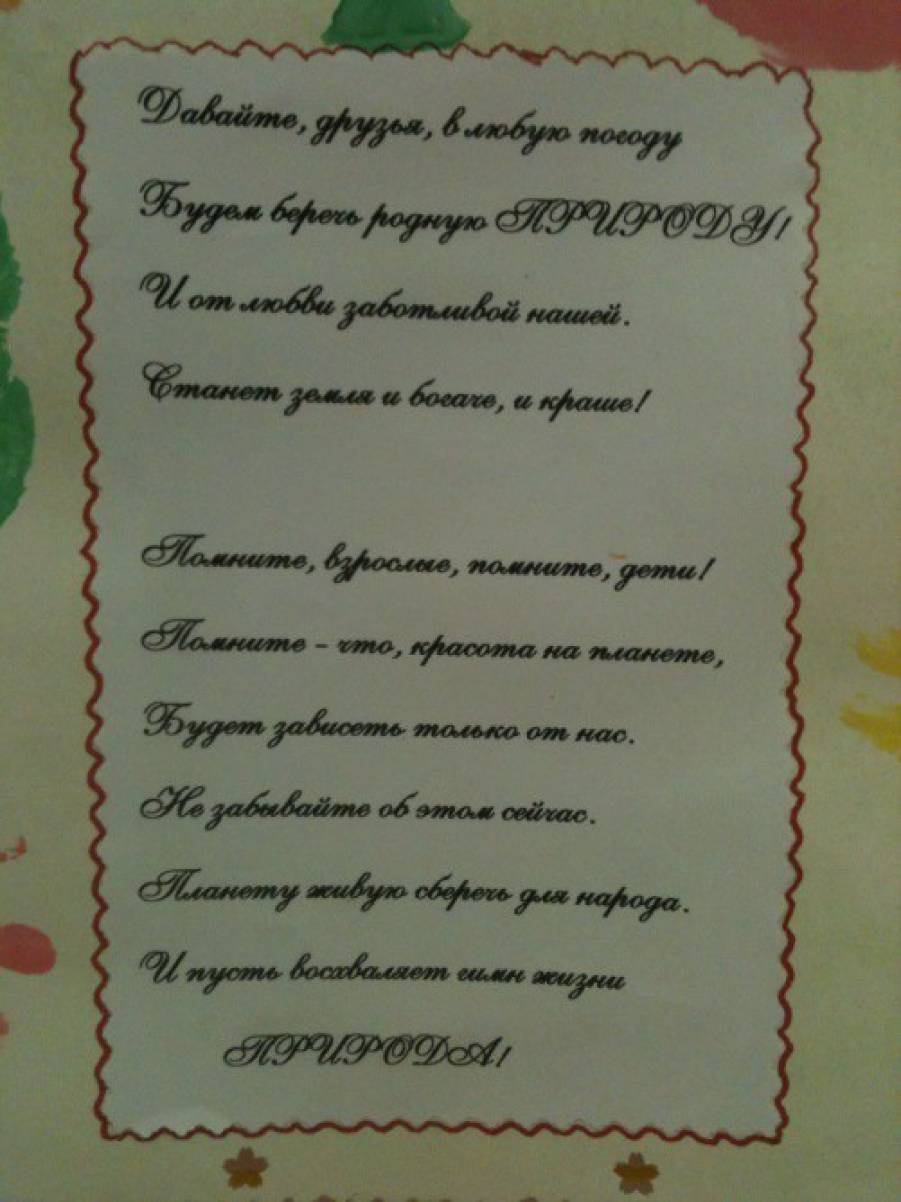 Давайте, друзья, в любую погоду
Будем беречь родную ПРИРОДУ!
И от любви заботливой нашей.
Станет земля и богаче, и краше!
Помните, взрослые, помните, дети!
Помните - что, красота на планете,
Будет зависеть только от нас.
Не забывайте об этом сейчас.
Планету живую сберечь для народа.
И пусть восхваляет гимн жизни
ПРИРОДА!